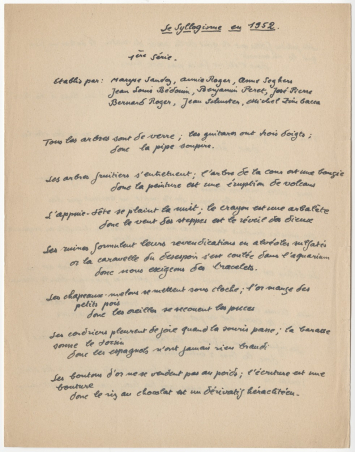 Le Syllogisme en 1952.
1ère Série.
Etablis par: Maryse Sandoz, Annie Roger, Anne Seghers
Jean Louis Bédouin, Benjamin Péret, José Pierre
Bernard Roger, Jean Schuster, Michel Zimbacca
Tous les arbres sont de verre; les guitares ont trois doigts;
donc la pipe soupire.
Les arbres fruitiers s'entretuent; l'arbre de la cour est une bougie
donc la peinture est une éruption de volcans
L'appuie-tête se plaint la nuit; le crayon est une arbalète
donc le vent des steppes est le réveil des dieux
Les ruines formulent leurs revendications en alvéoles
or la caravelle du désespoir s'est coulée dans l'aquarium
donc nous exigeons des bracelets.
Les chapeaux-melons se mettent sous cloche; l'or mange des
petits pois
donc les oreilles se secouent les puces
Les cordiers pleurent de joie quand la souris passe; la
sonne le tocsin
donc les espagnols n'ont jamais rien brandi
Les boutons d'or ne se vendent pas au poids; l'écriture est une
bouture
donc le riz au chocolat est un dérivatif héraclitéen.